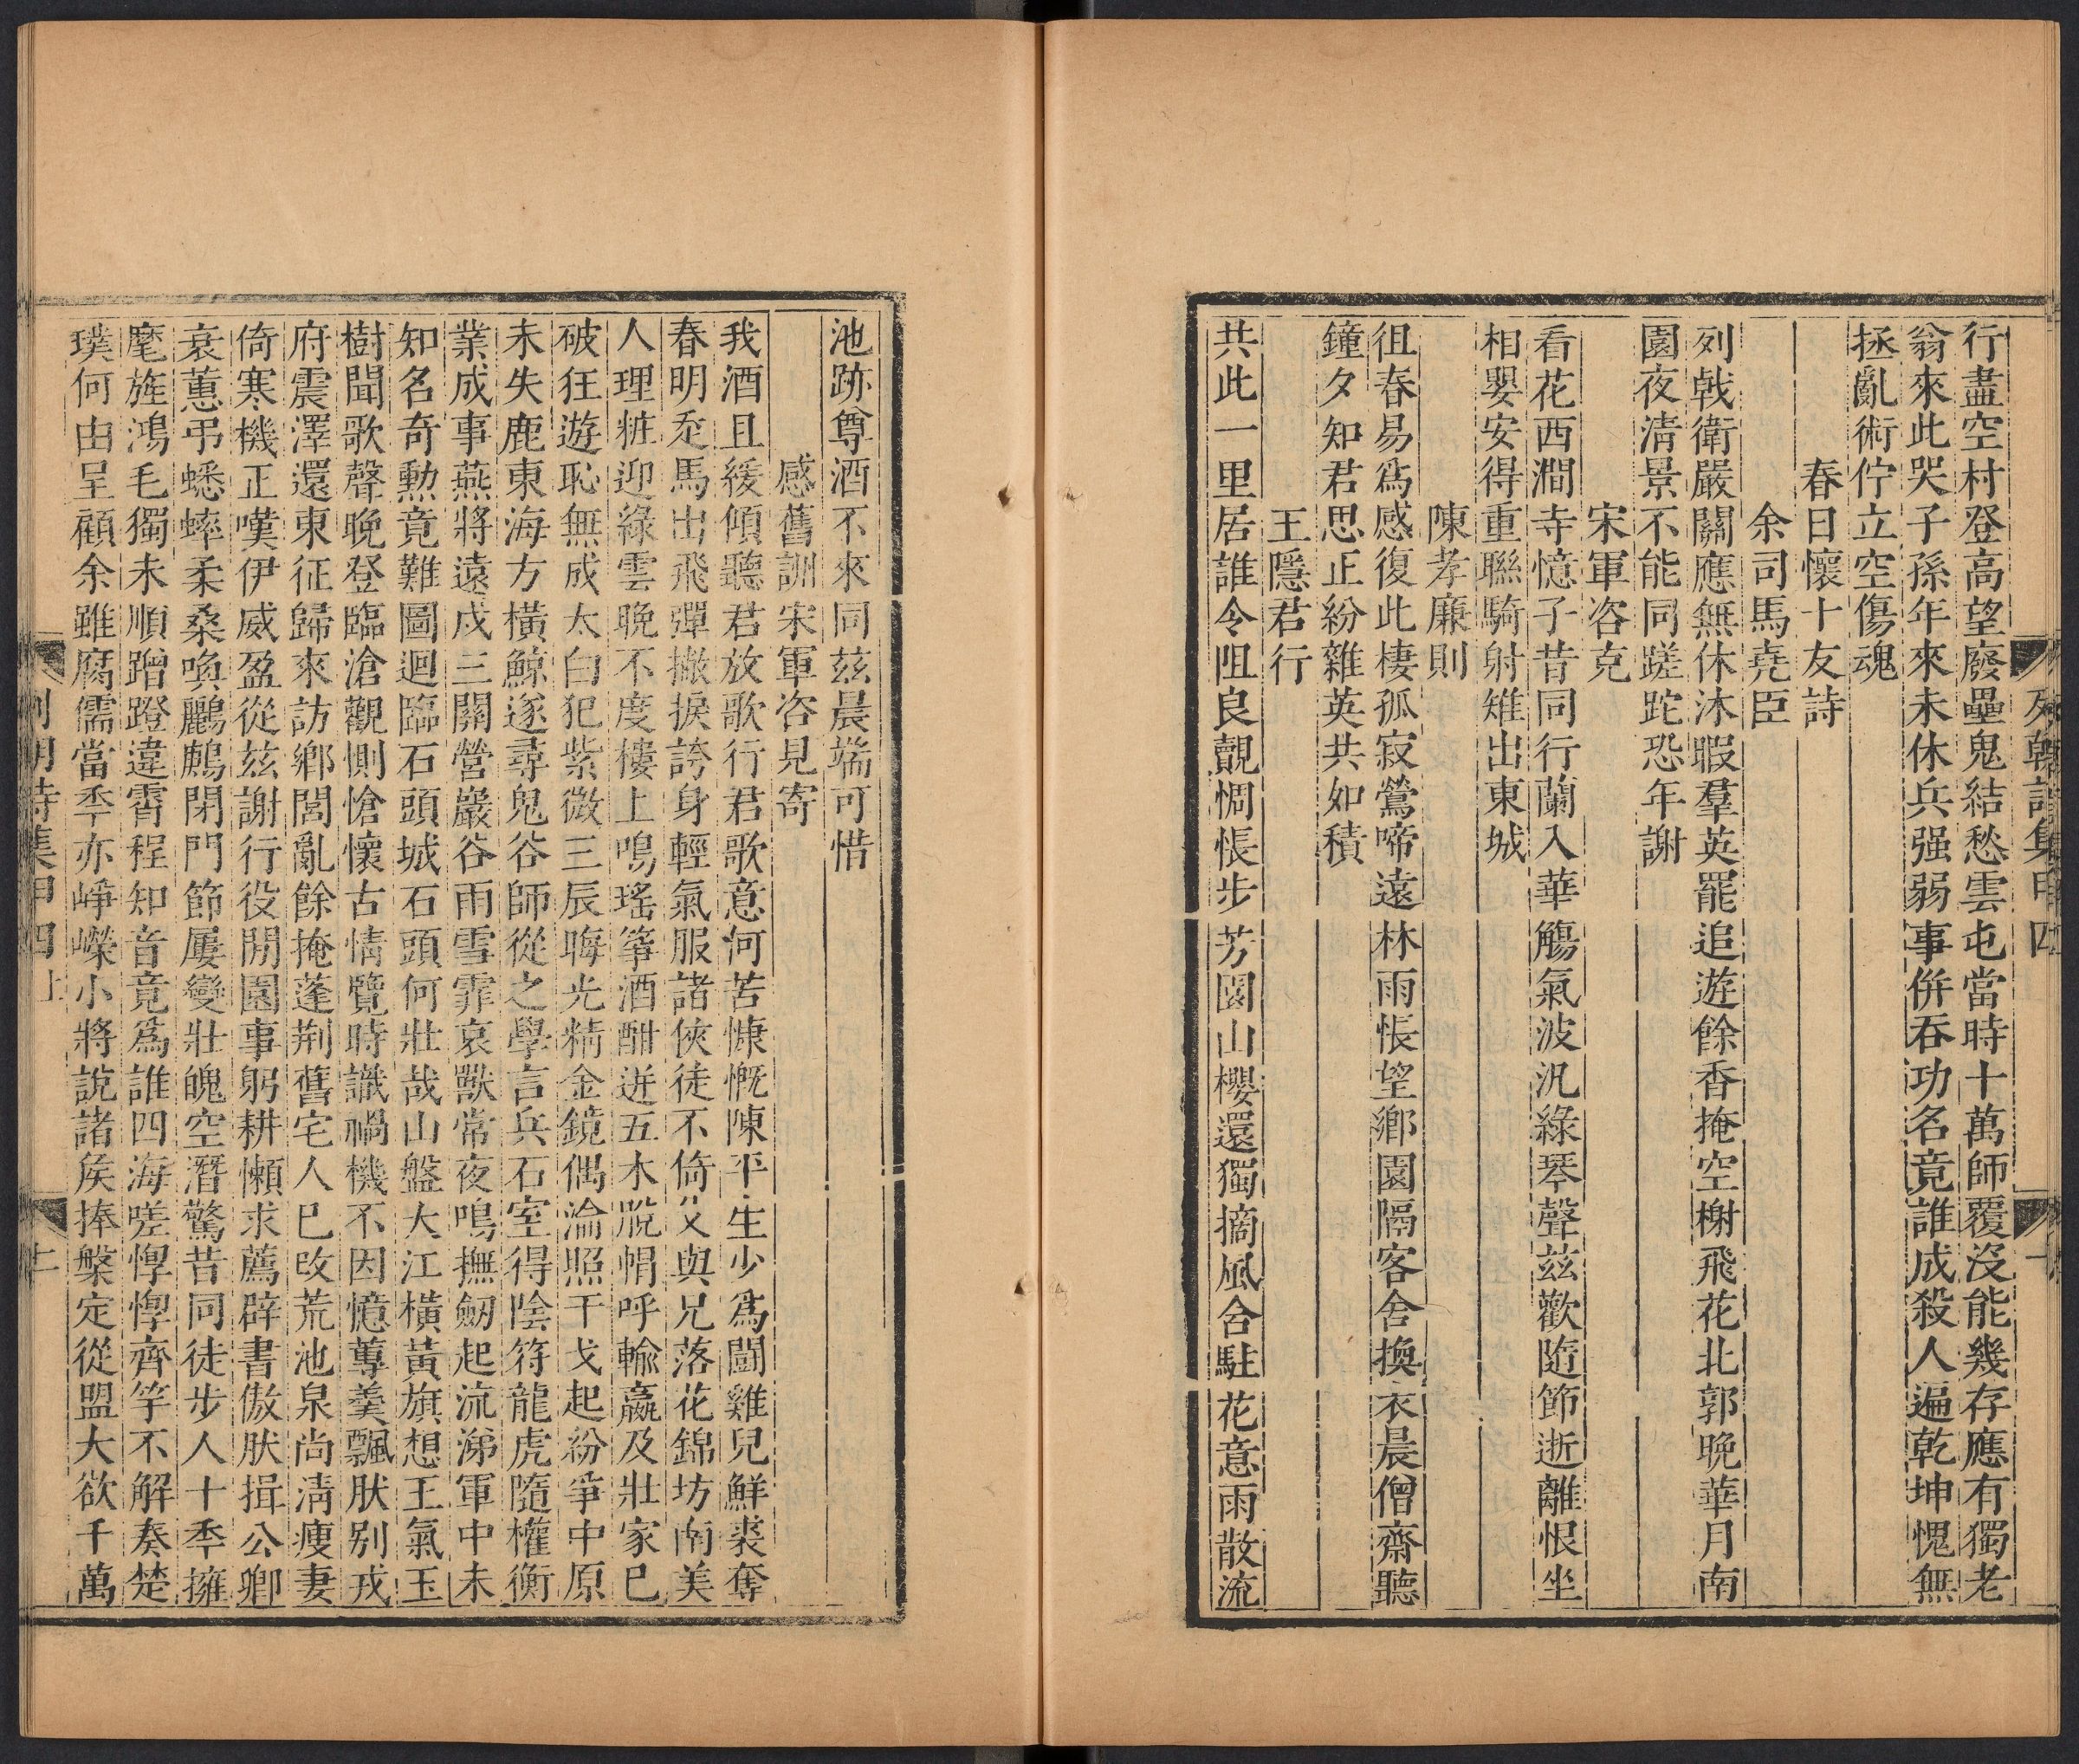 行盡空村登高望廢壘鬼結愁雲屯當時十萬師覆沒能幾存應有獨老
翁來此哭子孫年來未休兵强弱事併吞功名竟誰成殺人遍乾坤愧無
拯亂術佇立空傷魂
春日懷十友詩
余司馬堯臣
列戟衛嚴關應無休沐暇羣英罷追遊餘香掩空榭飛花北郭晚華月南
園夜清景不能同蹉跎恐年謝
宋軍咨克
看花西澗寺憶子昔同行蘭入華觴氣波汎綠琴聲茲歡隨節逝離恨坐
相嬰安得重聯騎射雉出東城
陳孝廉則
徂春易爲感復此棲孤寂鶯啼遠林雨悵望鄉園隔客舍換衣晨僧齋聽
鐘夕知君思正紛雜英共如積
王隱君行
共此一里居誰令阻良覿惆悵步芳園山櫻還獨摘風舍駐花意雨散流
池跡尊酒不來同茲晨端可惜
感舊詶宋軍咨見寄
我酒且緩傾聽君放歌行君歌意何苦慷慨陳平生少爲鬪雞兒鮮裘奪
春明走馬出飛彈撇捩誇身輕氣服諸俠徒不倚父與兄落花錦坊南美
人理粧迎綠雲晩不度樓上鳴瑤箏酒酣迸五木脫帽呼輸嬴及壯家已
破狂遊恥無成太白犯紫微三辰晦光精金鏡偶淪照干戈起紛爭中原
未失鹿東海方橫鯨遂尋鬼谷師從之學言兵石室得陰符龍虎隨權衡
業成事燕將遠戍三關營巖谷雨雪霏哀獸常夜鳴撫劒起流涕軍中未
知名奇勲竟難圖迴臨石頭城石頭何壯哉山盤大江橫黃旗想王氣玉
樹聞歌聲晩登臨滄觀惻愴懷古情覽時識禍機不因憶蓴羹飄肰别戎
府震澤還東征歸來訪鄉閭亂餘掩蓬荆舊宅人已改荒池泉尚淸瘦妻
倚寒機正嘆伊威盈從茲謝行役開園事躬耕懶求薦辟書傲肰揖公卿
衰蕙弔蟋蟀柔桑喚鸝鶊閉門節屢變壯魄空潛驚昔同徒步人十秊擁
麾旌鴻毛獨未順蹭蹬違霄程知音竟爲誰四海嗟惸惸齊竽不解奏楚
璞何由呈顧余雖腐儒當秊亦崢嶸小將說諸矦捧槃定從盟大欲千萬